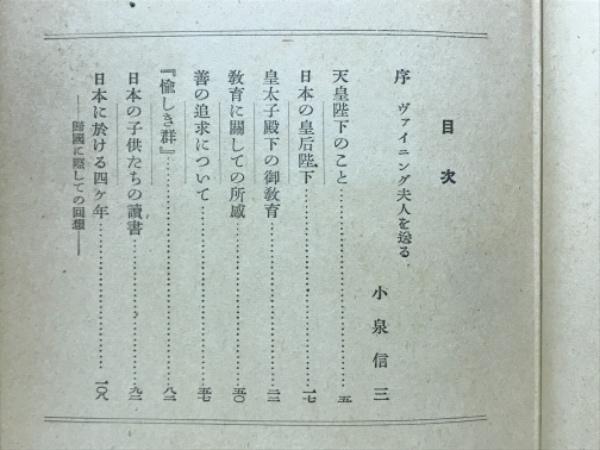 目次
序 ヴァイニング夫人を送る 小泉信三
天皇陛下のこと……………五
日本の皇后陛下……………一七
皇太子殿下の御敎育……………二二
敎育に關しての所感……………五〇
善の追求について……………五七
『愉しき群』……………八二
日本の子供たちの讀書……………九二
日本に於ける四ヶ年……………一〇八
――歸國に際しての回想――